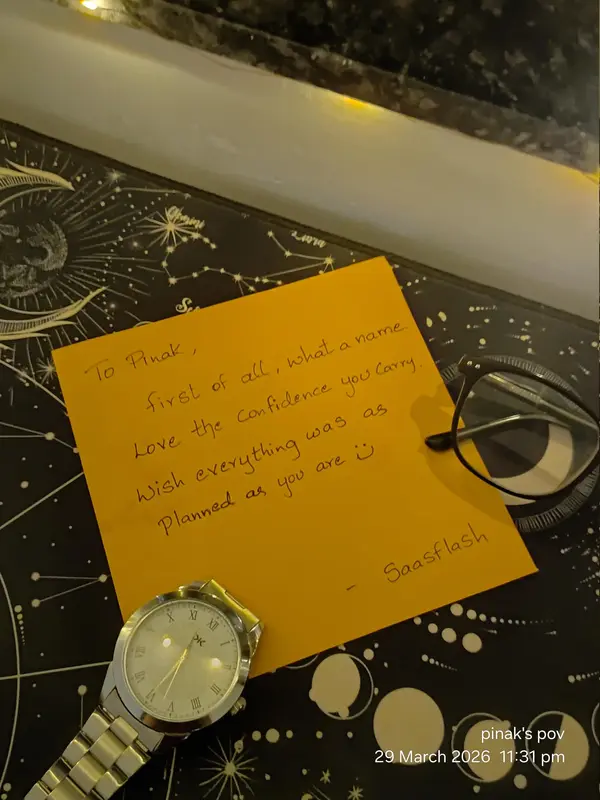 To Pinak,
first of all, what a name
Love the confidence you carry.
Wish everything was as
Planned as you are
- Saasflash
XI XII
X
pinak's pov
29 March 2026 11:31 pm